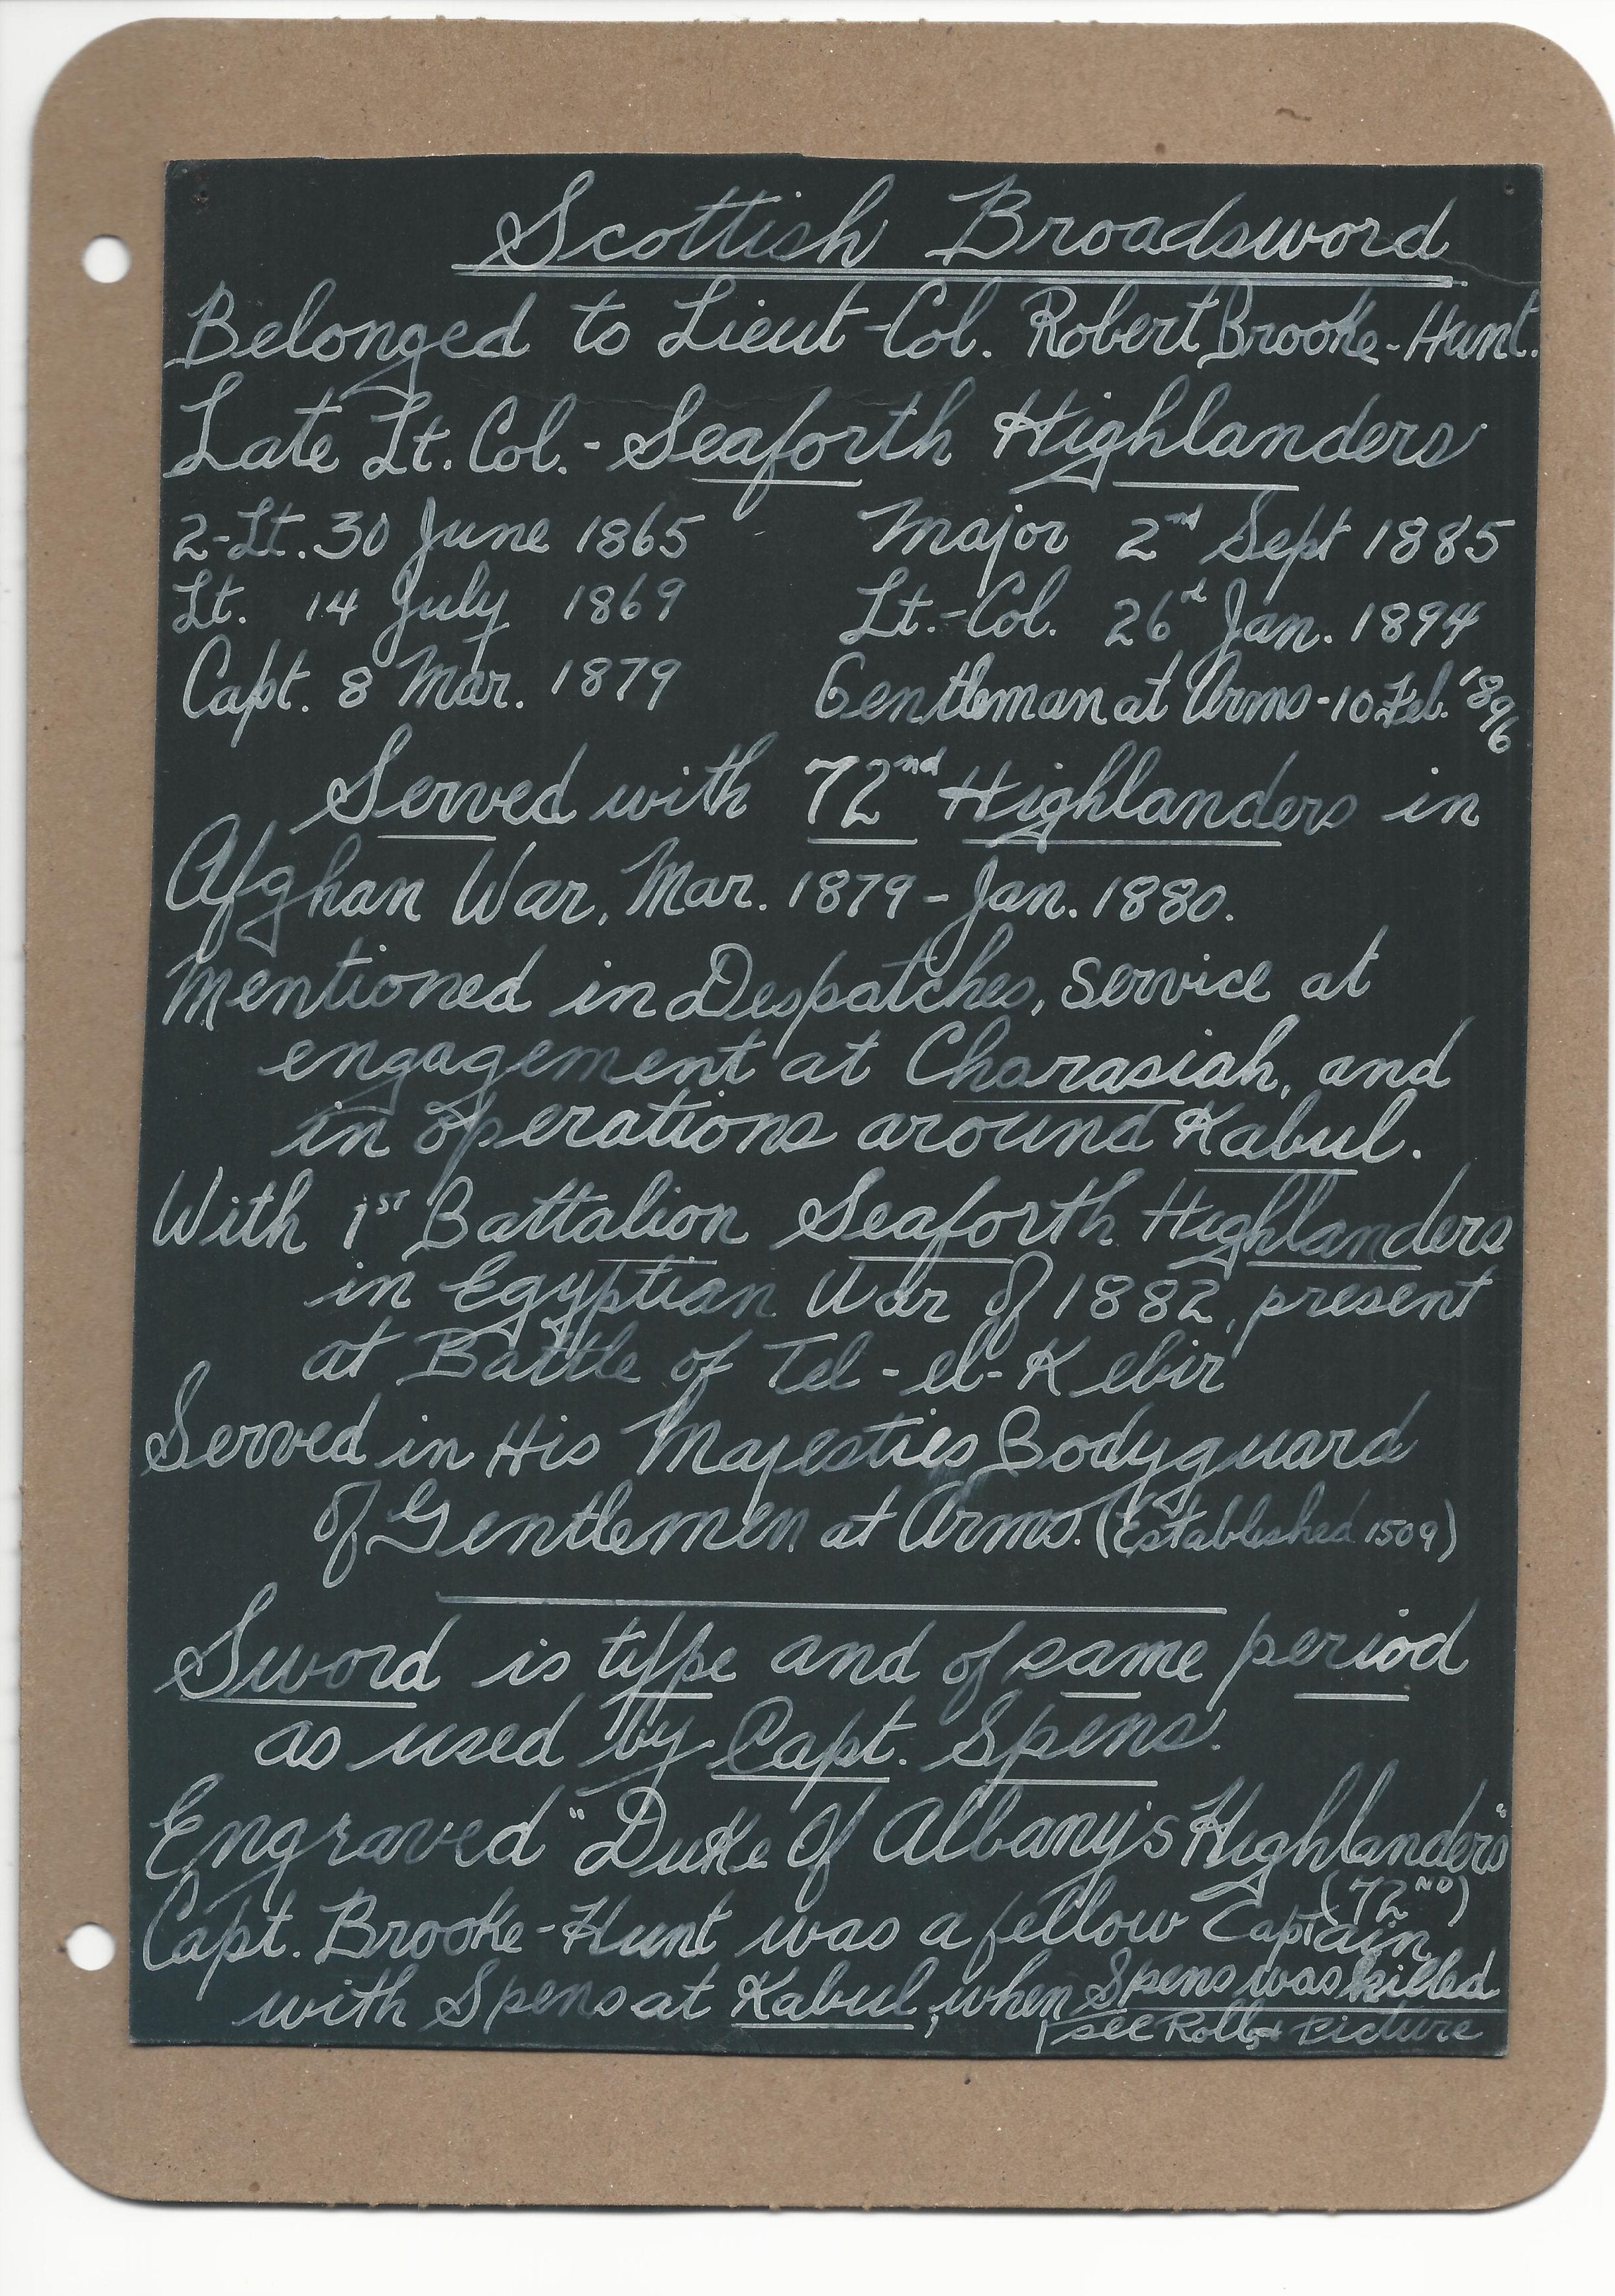 Scottish Broadsword
Belonged to Lieut-Col. Robert Brooke-Hunt.
Late Lt. Col. - Seaforth Highlanders
2-Lt. 30 June 1865 Major 2nd Sept 1885
Lt. 14 July 1869 Lt.-Col. 26rd Jan. 1894
Capt. 8 Mar. 1879 Gentleman at Arms - 10 Feb. '896
Served with 72nd Highlanders in
Afghan War, Mar. 1879 - Jan. 1880.
Mentioned in Despatches, service at
engagement at Charasiah, and
in operations around Kabul.
With 1ST Battalion Seaforth Highlanders
in Egyptian War of 1882, present
at Battle of Tel-el-Kebir
Served in His Majesties Bodyguard
of Gentlemen at Arms. (Established 1509)
Sword is type and of same period
as used by Capt. Spens.
Engraved "Duke Of Albany's Highlanders"
(72ND)
Capt. Brooke-Hunt was a fellow Captain
with Spens at Kabul, when Spens was killed
see Roll & Picture